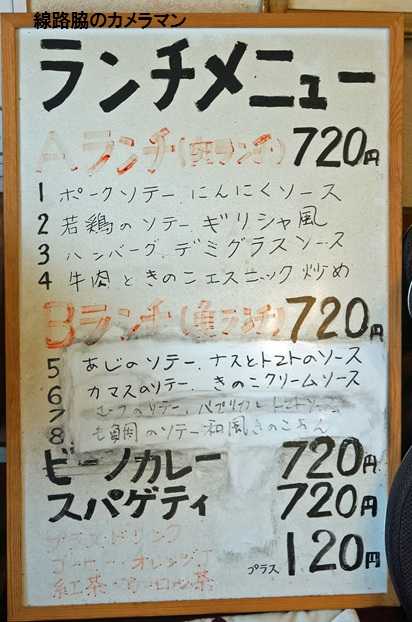 線路脇のカメラマン
ランチメニュー
Aランチ(肉ランチ) 720円
1 ポークソテー.にんにくソース
2 若鶏のソテー.ギリシャ風
3 ハンバーグ.デミグラスソース
4 牛肉ときのこエスニック炒め
Bランチ(魚ランチ) 720円
5 あじのソテー.ナスとトマトのソース
6 カマスのソテー.きのこクリームソース
7 のソテー.パプリカ トマトソース
8 鯛のソテー和風きのこあん
ビーノカレー 720円
スパゲティ 720円
プラスドリンク
コーヒー・オレンジ プラス 120円
紅茶・ウーロン茶